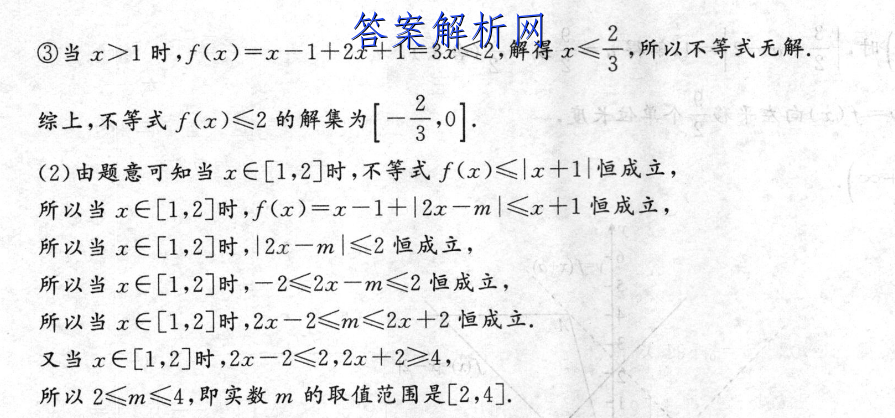 答案解析网
③当 x>1 时,f(x)=x-1+2x+1=3x≤2,解得 x≤2/3,所以不等式无解.
综上,不等式 f(x)≤2 的解集为[-2/3,0].
(2)由题意可知当 x∈[1,2]时,不等式 f(x)≤|x+1|恒成立,
所以当 x∈[1,2]时,f(x)=x-1+|2x-m|≤x+1 恒成立,
所以当 x∈[1,2]时,|2x-m|≤2 恒成立,
所以当 x∈[1,2]时,-2≤2x-m≤2 恒成立,
所以当 x∈[1,2]时,2x-2≤m≤2x+2 恒成立.
又当 x∈[1,2]时,2x-2≤2,2x+2≥4,
所以 2≤m≤4,即实数 m 的取值范围是[2,4].